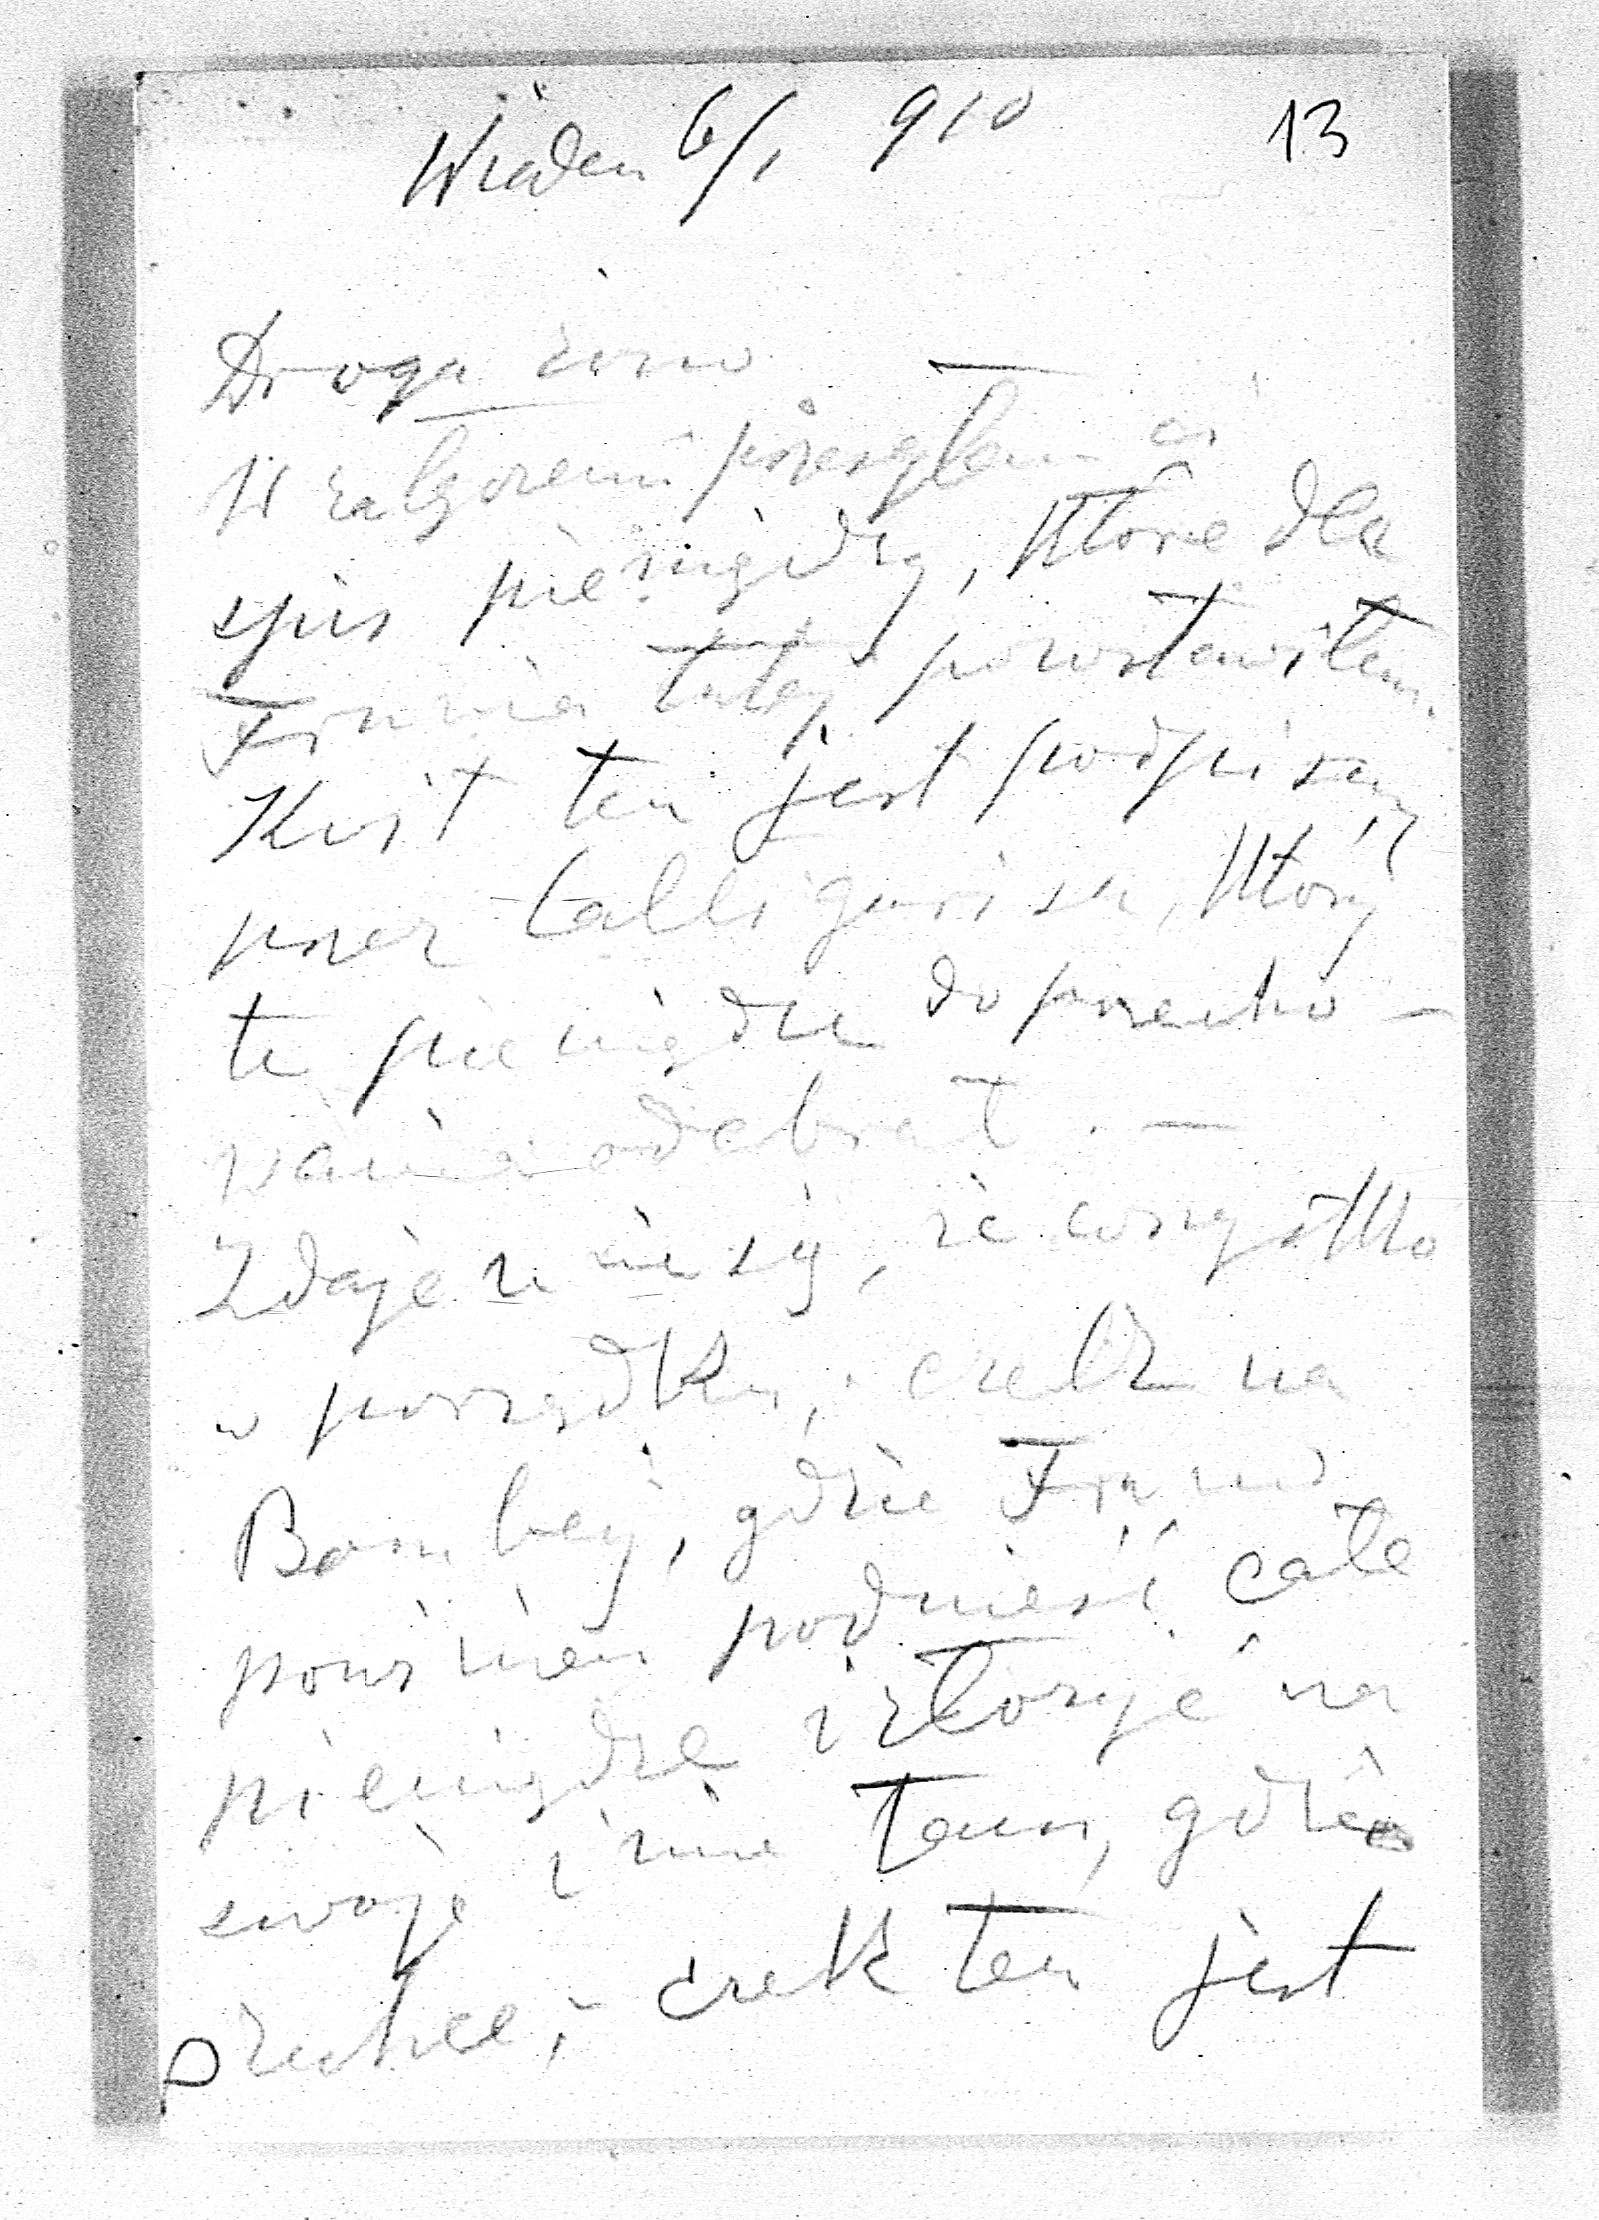 Wiedeń 6/1 910
13
Droga żono
W załączeniu przesyłam ci
spis pieniędzy, które dla
Frania tutaj pozostawiłem.
Kwit ten jest podpisany
przez który
te pieniądze do przecho-
wania odebrał. —
Zdaje mi się, że wszystko
w porządku; czek na
Bombay, gdzie Franio
powinien podnieść całe
pieniądze i złożyć na
swoje imię tam, gdzie
zechce; czek ten jest